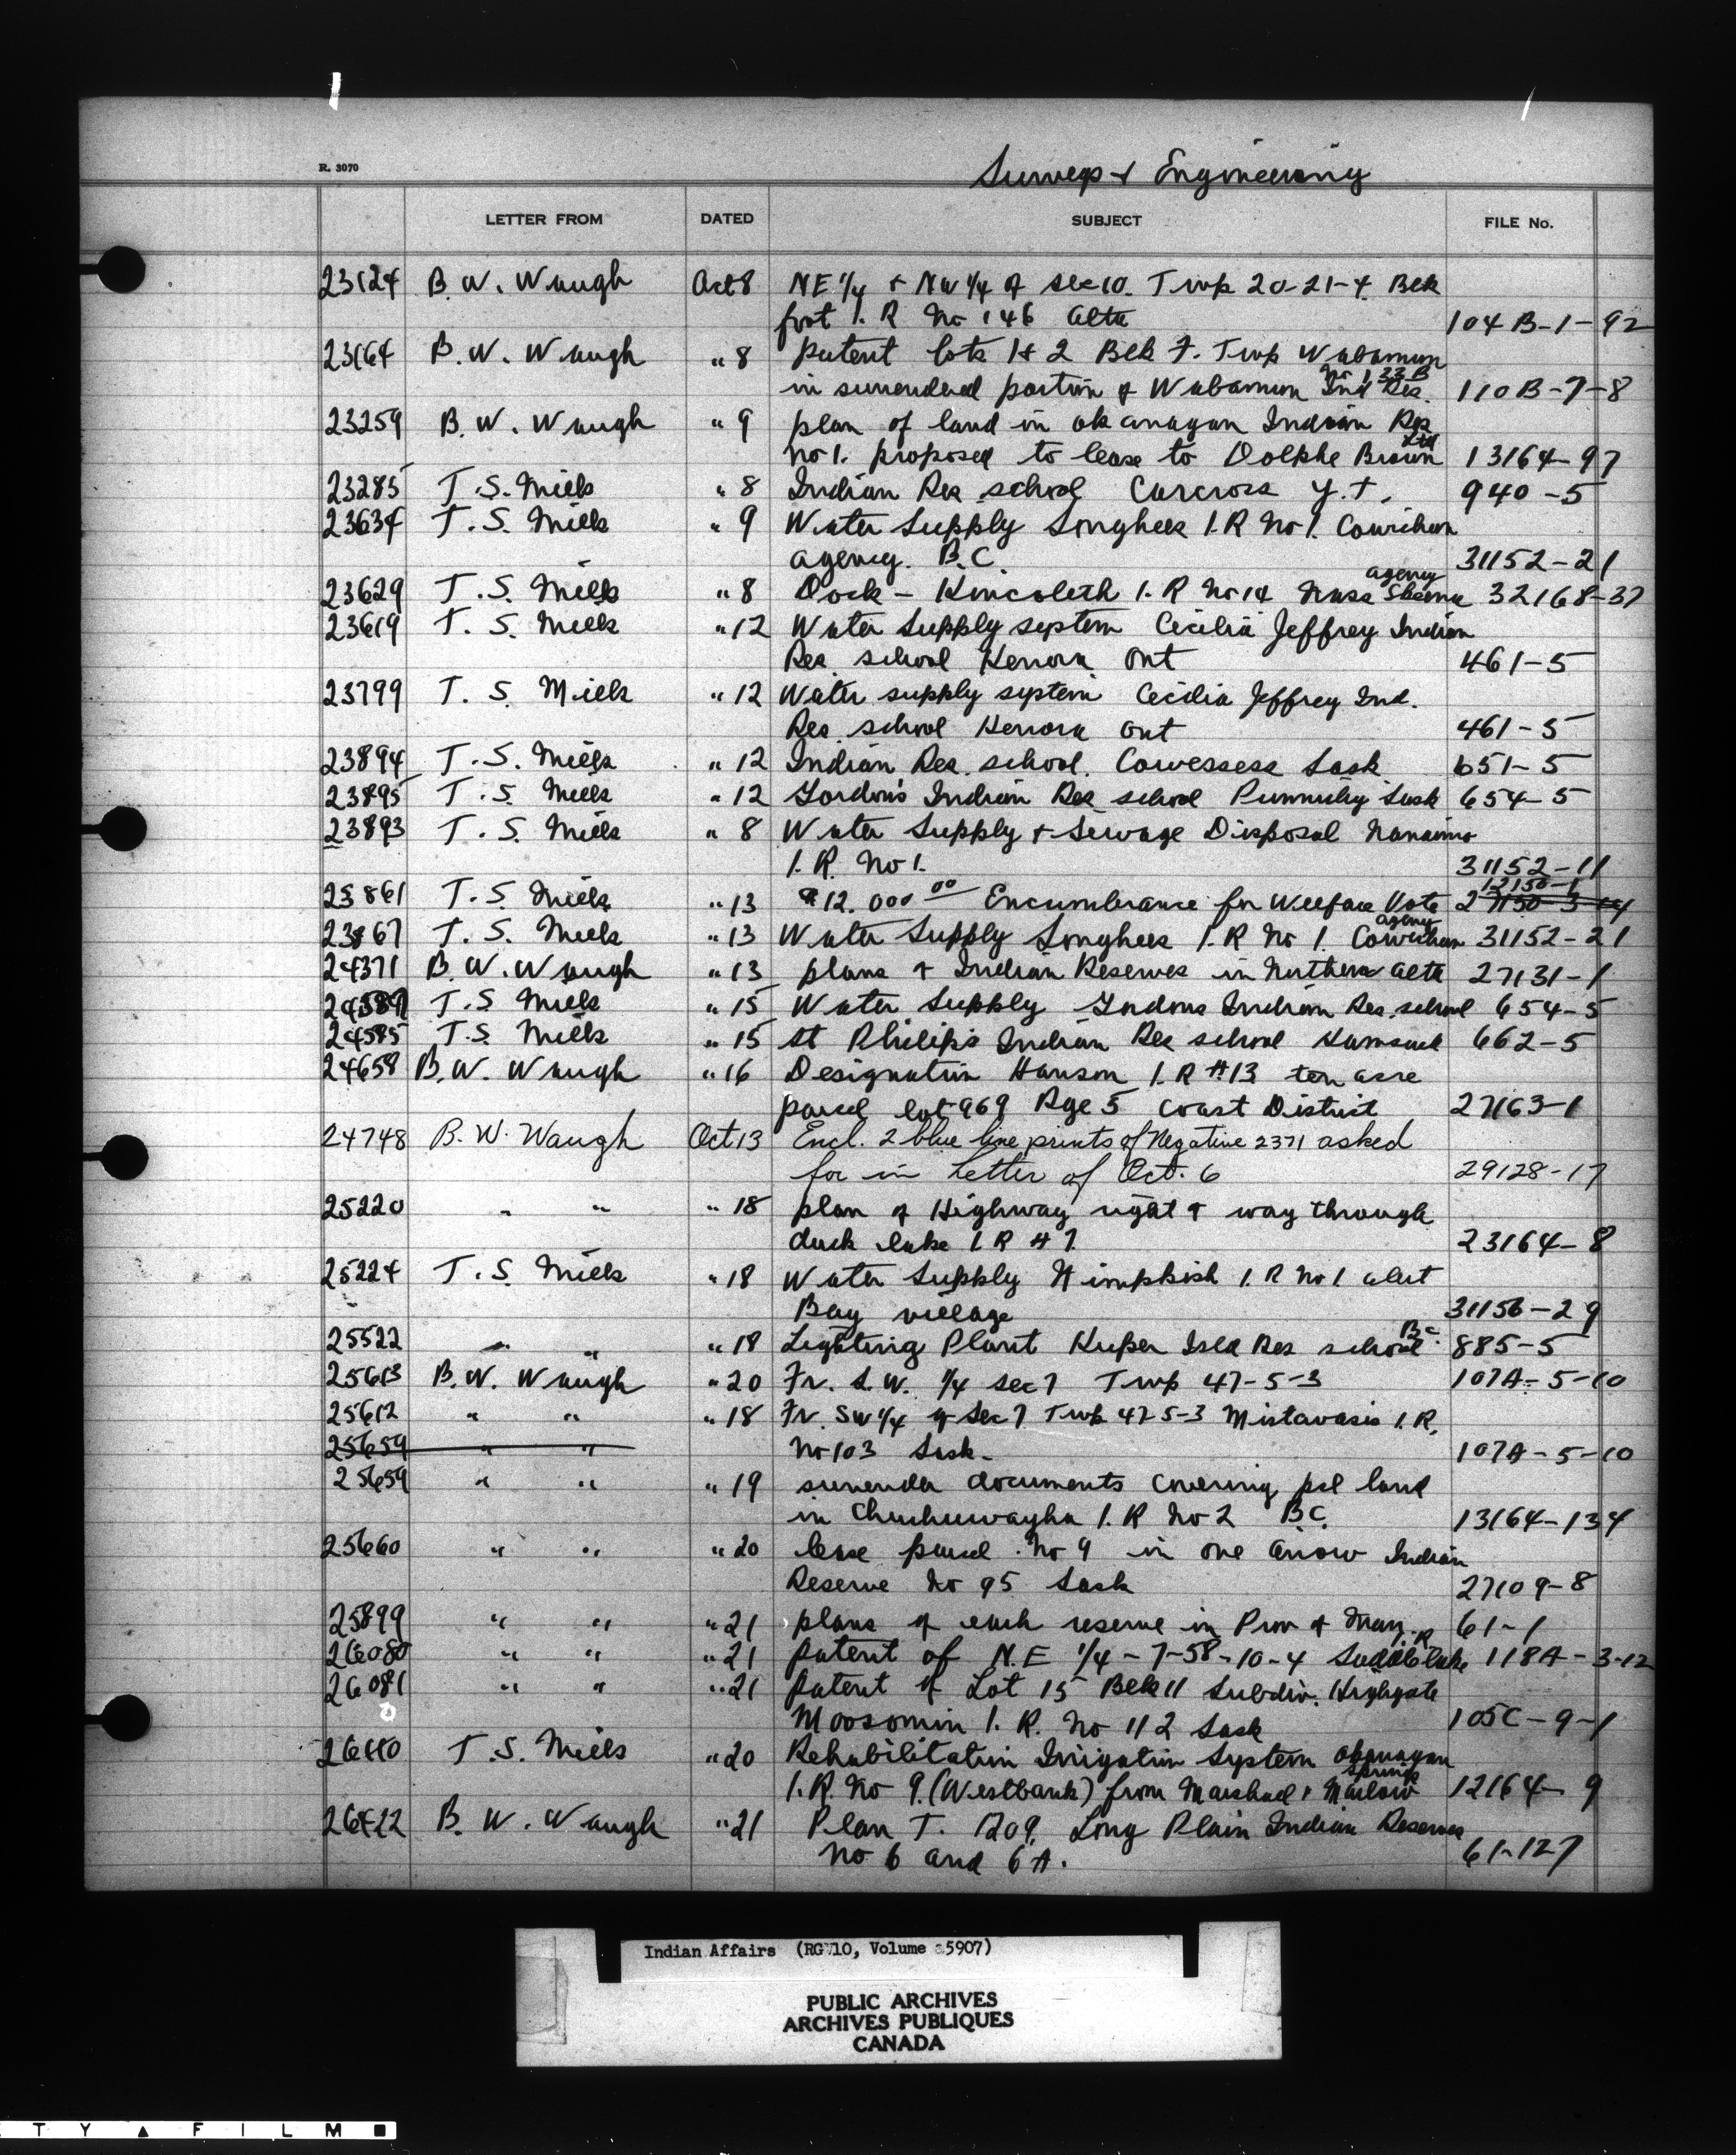 R. 3070
Surveys & Engineering
LETTER FROM DATED SUBJECT FILE No.
23124 B. W. Waugh Oct 8 NE 1/4 & NW 1/4 of sec 10. Twp 20-21-4 Blk
foot I. R No 146 Alta 104 B-1-92
23164 B. W. Waugh " 8 Patent lots 1 & 2 Blk F. Twp Wabamun
in surrendered portion of Wabamun Ind Res. No 133 B 110 B-7-8
23259 B. W. Waugh " 9 plan of land in Okanagan Indian Res
No 1. proposed to lease to Dolphe Brown Ltd 13164-97
23285 T. S. Mills " 8 Indian Res school Carcross Y.T. 940-5
23634 T. S. Mills " 9 Water Supply Songhees I.R No 1. Cowichan
agency. B.C. 31152-21
23629 T. S. Mills " 8 Dock - Kincolith I. R No 14 Nass Skeena agency 32168-37
23619 T. S. Mills " 12 Water Supply system Cecilia Jeffrey Indian
Res. school Kenora Ont 461-5
23799 T. S. Mills " 12 Water supply system Cecilia Jeffrey Ind.
Res. school Kenora Ont 461-5
23894 T. S. Mills " 12 Indian Res. school. Cowessess Sask 651-5
23895 T. S. Mills " 12 Gordon's Indian Res school Punnichy Sask 654-5
23893 T. S. Mills " 8 Water Supply & Sewage Disposal Nanaimo
I. R. No 1. 31152-11
23861 T. S. Mills " 13 $12.000 00 Encumbrance for Welfare Vote 12150-1
23867 T. S. Mills " 13 Water Supply Songhees I. R No 1. Cowichan agency 31152-21
24371 B. W. Waugh " 13 plans of Indian Reserves in Northern Alta 27131-1
T. S Mills " 15 Water Supply Gordons Indian Res. school 654-5
24585 T. S. Mills " 15 St Philips Indian Res school Kamsack 662-5
24658 B. W. Waugh " 16 Designation Hanson I. R # 13 ten acre
parcel lot 969 Rge 5 Coast District 27163-1
24748 B. W. Waugh Oct 13 Encl. 2 blue line prints of Negative 2371 asked
for in Letter of Oct. 6 29128-17
25220 " " " 18 plan of Highway right of way through
duck lake I R # 7 23164-8
25224 T. S. Mills " 18 Water Supply Nimpkish I. R No 1 alert
Bay village 31156-29
25522 " " " 18 Lighting Plant Kuper Isld Res school B.C. 885-5
25613 B. W. Waugh " 20 Fr. S.W. 1/4 sec 7 Twp 47-5-3 107A-5-10
25612 " " " 18 Fr. SW 1/4 of Sec 7 Twp 47 5-3 Mistawasis I. R.
25659 " " No 103 Sask. 107A-5-10
25659 " " " 19 surrender documents covering pcl land
in Chuchuwayha I. R No 2 B.C. 13164-134
25660 " " " 20 lease parcel No 9 in One Arrow Indian
Reserve No 95 Sask 27109-8
25899 " " " 21 plans of each reserve in Prov of Man. 61-1
26080 " " " 21 patent of N.E 1/4-7-58-10-4 Saddle lake I. R 118A-3-12
26081 " " " 21 Patent of Lot 15 Blk 11 Subdiv. Highgate
Moosomin I. R. No 112 Sask 105C-9-1
T. S. Mills " 20 Rehabilitation Irrigation System Okanagan
I. R. No 9. (Westbank) from Marshad & Marlow springs 12164-9
B. W. Waugh " 21 Plan T. 1209. Long Plain Indian Reserves
No 6 and 6A. 61-127
Indian Affairs (RG 10, Volume 5907)
PUBLIC ARCHIVES
ARCHIVES PUBLIQUES
CANADA
T Y ▲ F I L M ■